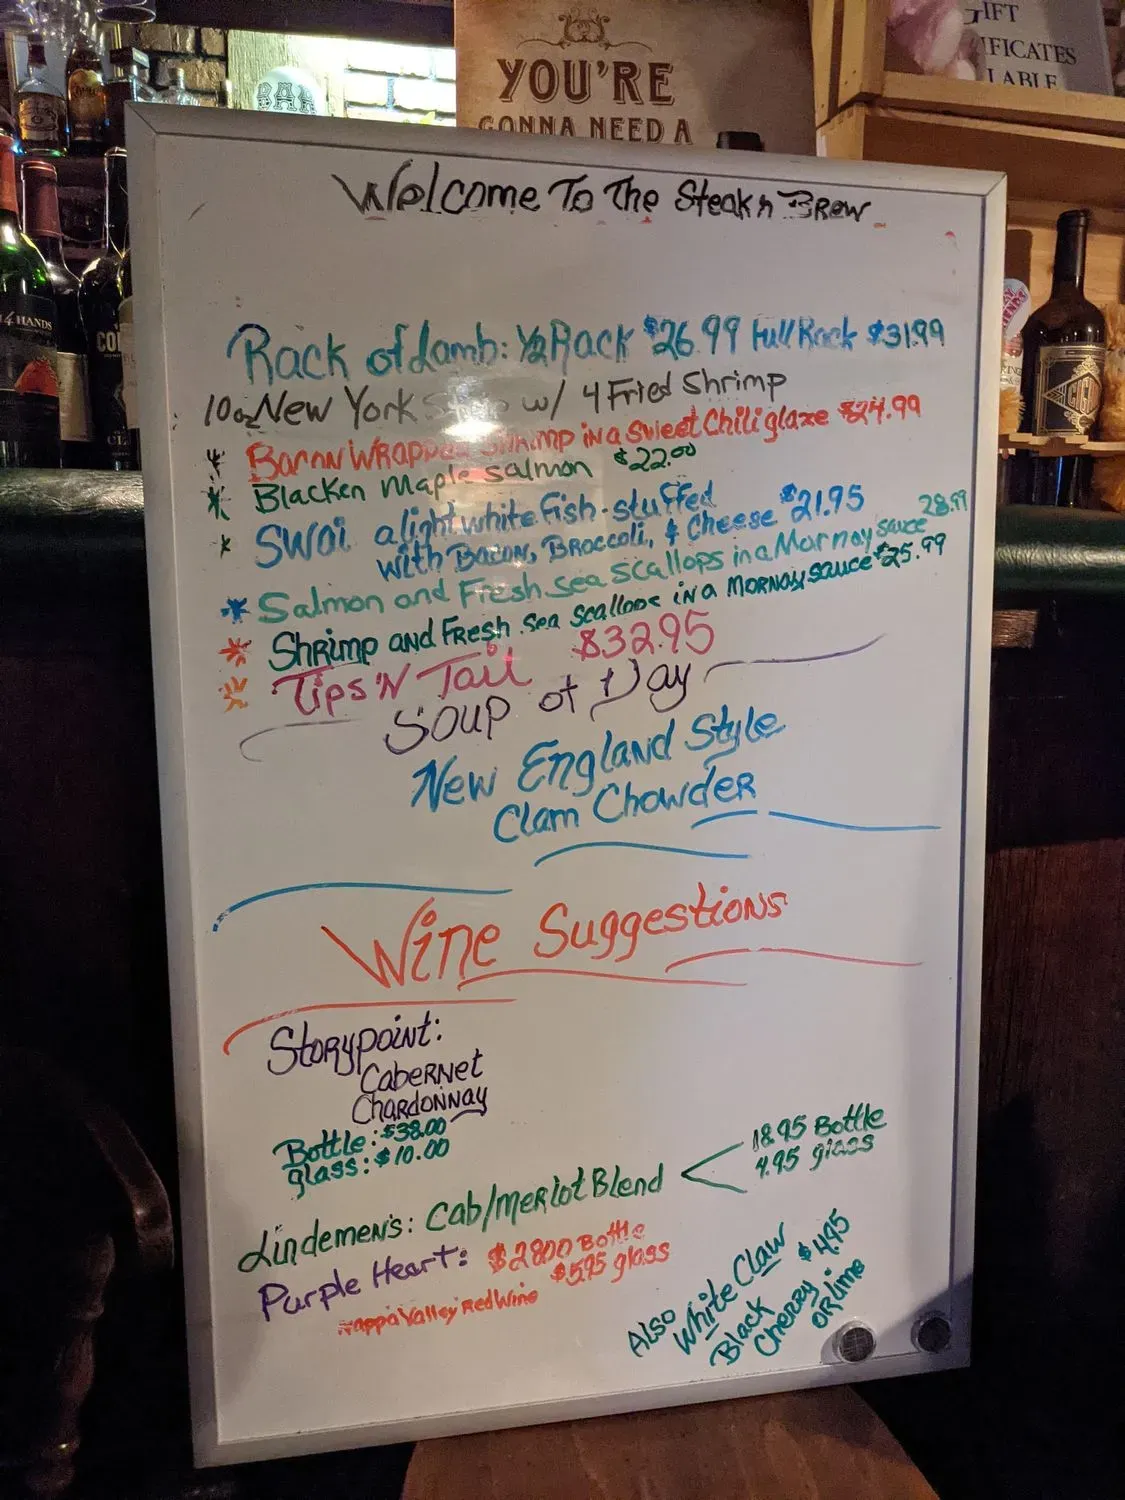 BAR
YOU'RE
GONNA NEED A
GIFT
IFICATES
LABLE
14 HANDS
Welcome To The Steak n Brew
Rack of Lamb: 1/2 Rack $26.99 Full Rack $31.99
10oz New York w/ 4 Fried Shrimp
Bacon Wrapped Shrimp in a Sweet Chili glaze $24.99
Blacken Maple Salmon $22.00
Swai a light white fish-stuffed
with Bacon, Broccoli, & Cheese $21.95
Salmon and Fresh sea scallops in a Mornay sauce 28.99
Shrimp and Fresh sea scallops in a Mornay sauce $25.99
Tips 'N Tail $32.95
Soup of Day
New England Style
Clam Chowder
Wine Suggestions
Storypoint:
Cabernet
Chardonnay
Bottle: $38.00
glass: $10.00
Lindemen's: Cab/Merlot Blend
18.95 Bottle
4.95 glass
Purple Heart: $2800 Bottle
$5.95 glass
Nappa Valley Red Wine
Also
White Claw $4.95
Black
Cherry
or Lime